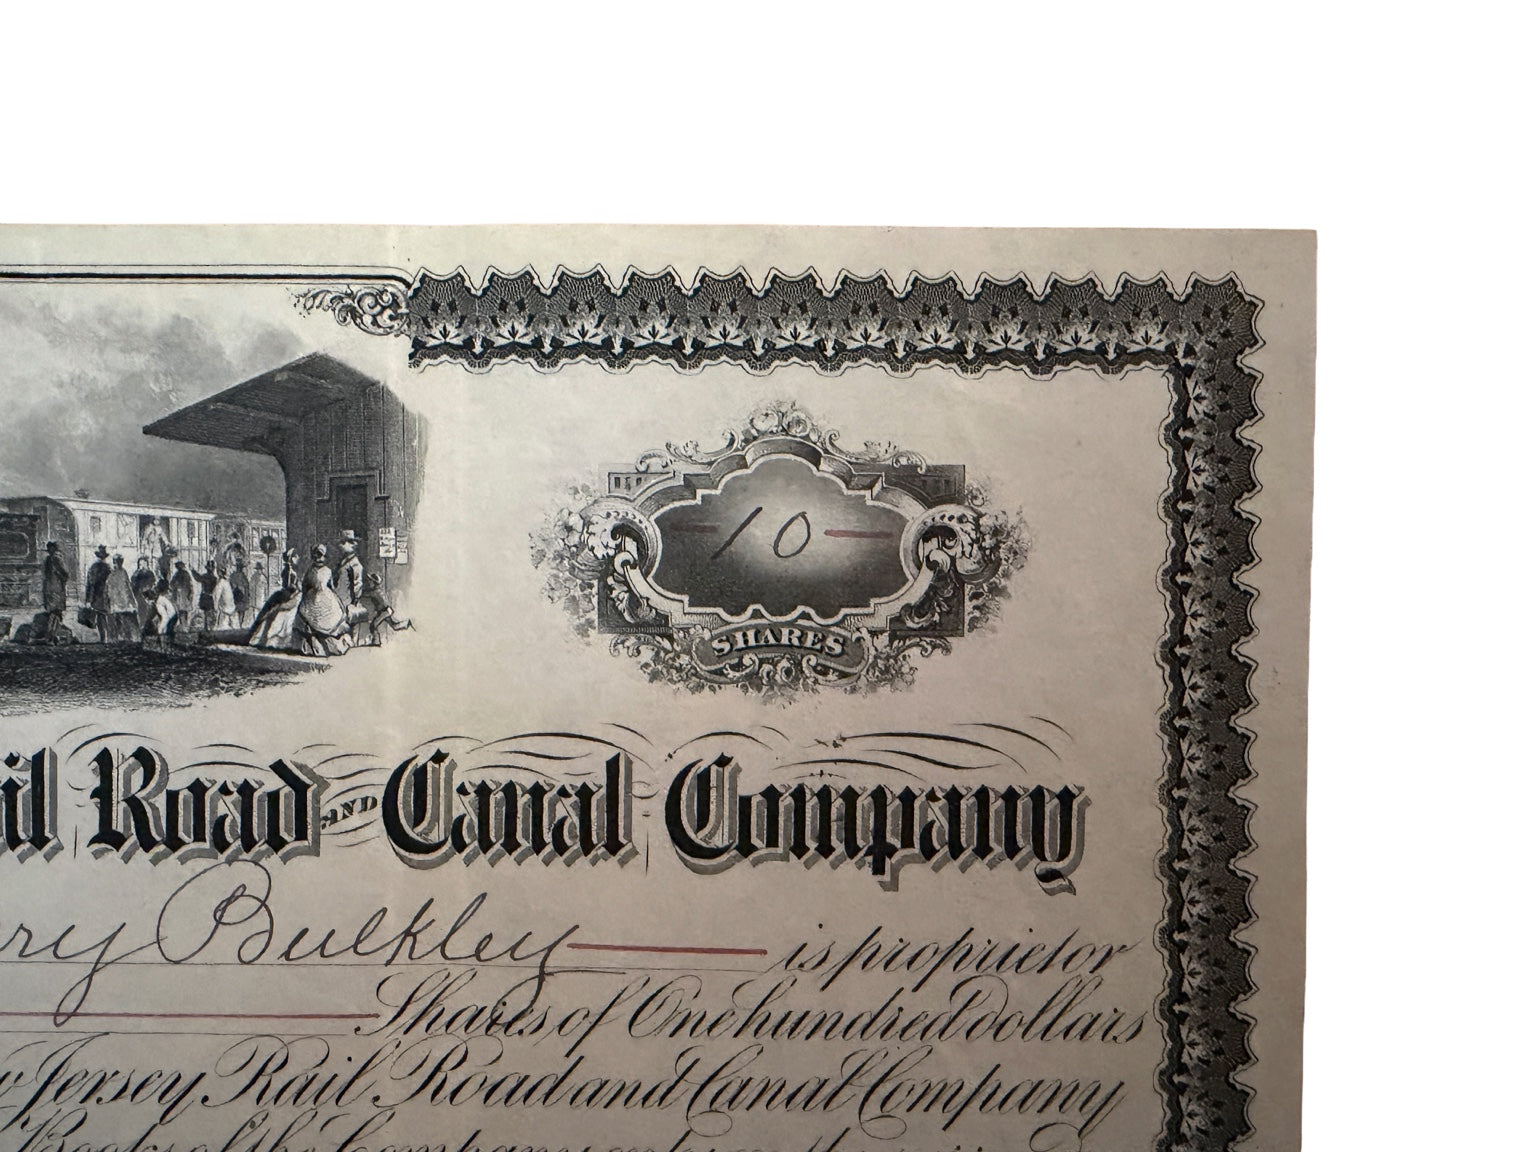 - 10 -
SHARES
il Road AND Canal Company
ry Bulkley is proprietor
Shares of One hundred dollars
Jersey Rail Road and Canal Company
Books of the Company